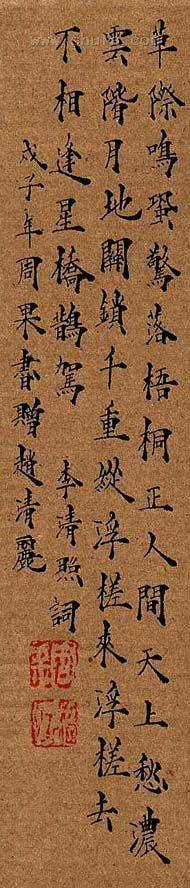 草際鳴蛩驚落梧桐正人間天上愁濃
雲階月地關鎖千重縱浮槎來浮槎去
不相逢星橋鵲駕 李清照詞
戊子年周果書贈趙清麗